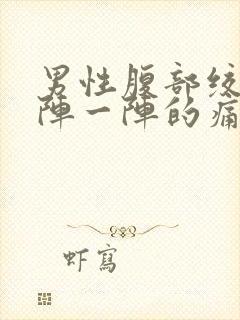 男性腹部绞
陣一陣的痛
虾寫